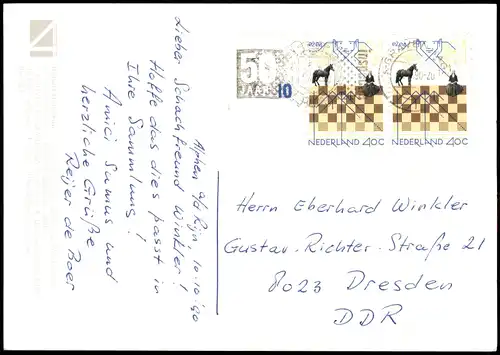 Alphen a/d Rijn, 10.10.'90
Lieber Schachfreund Winkler!
Hoffe das dies passt in
Ihre Sammlung!
Amici Sumus und
herzliche Grüße
Reijer de Boer
50
JAAR
10
NEDERLAND 40C
NEDERLAND 40C
Herrn Eberhard Winkler
Gustav-Richter-Straße 21
8023 Dresden
DDR